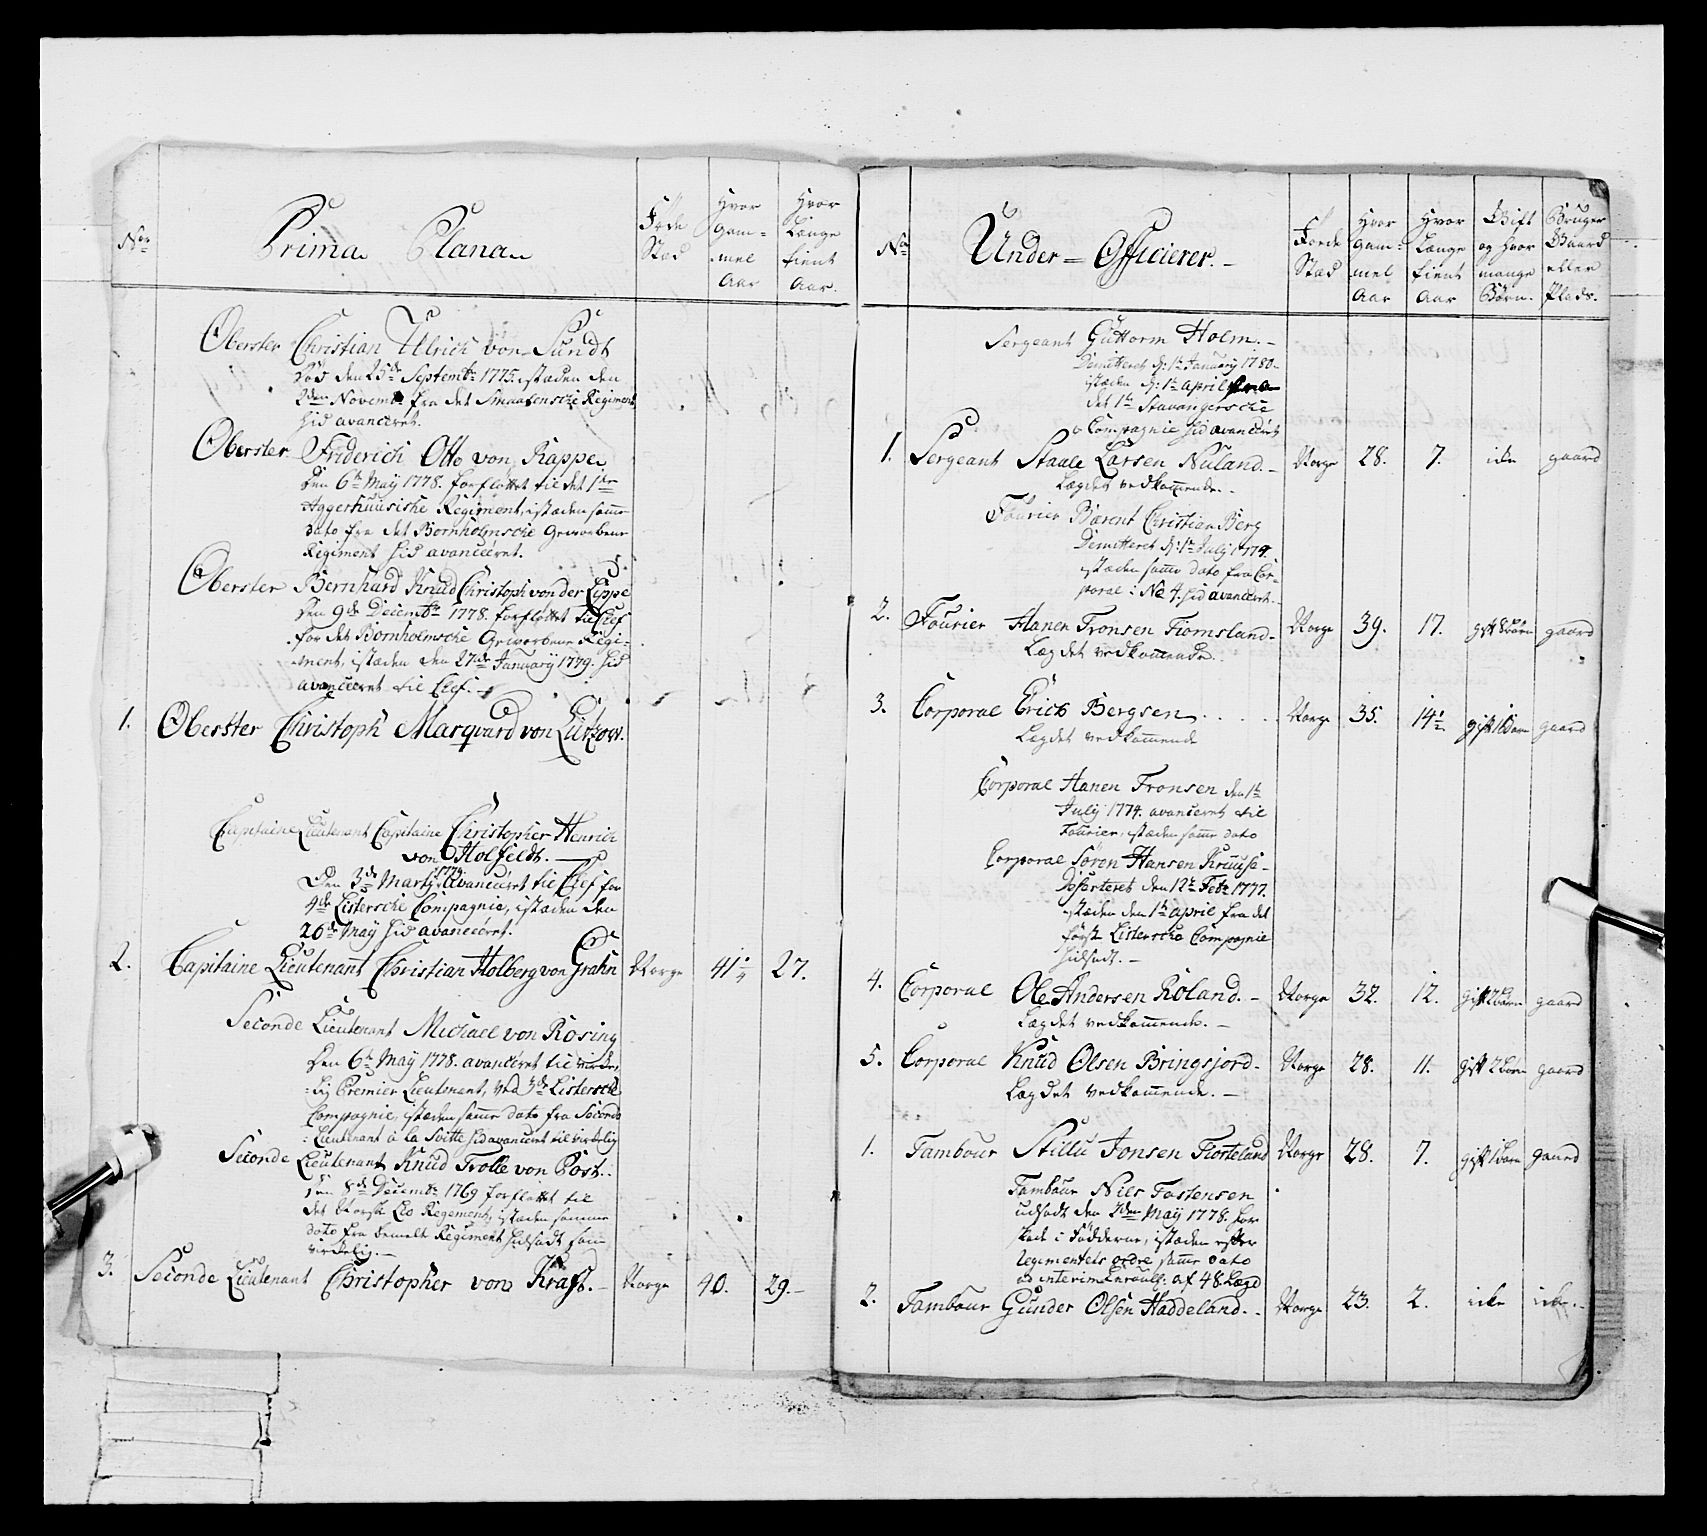 No
Prima Plana
Føde Stæd
Hvor gam= mel Aar
Hvor Længe tient Aar.
Oberster Christian Ulrich von Sundt
død den 25de Septembr 1775. istæden den
2den Novemb. fra det Smaalensche Regiment
hid avanceret.
Oberster Friderich Otto von Rappe
den 6te May 1778. forflottet til det 1ste
Aggerhuusiske Regiment, istæden samme
dato fra det Bornholmsche Geworbene
Regiment hid avanceret.
Oberster Bernhard Knud Christoph von der Lippe
den 9de Decembr 1778. forflottet til Chef
for det Bornholmsche Geworbene Regi=
ment, istæden den 27de January 1779. hid
avanceret til Chef.
1. Oberster Christoph Marqvard von Lützow.
Capitaine Lieutenant Capitaine Christopher Henrich
von Holfeldt.
Den 3de Marty 1779. avanceret til Chef for
4de Listersche Compagnie, istæden den
26de May hid avanceret.
2. Capitaine Lieutenant Christian Holberg von Grahn Norge 41 1/4 27.
Seconde Lieutenant Michael von Rosing
den 6te May 1778. avanceret til virke=
lig Premier Lieutenant, ved 3de Listersche
Compagnie, istæden samme dato fra Seconde
Lieutenant a la Svitte hid avanceret til virkelig
Seconde Lieutenant Knud Trolle von Post.
den 8de Decembr 1769 forflottet til
det Norske Liv Regiment, istæden samme
dato fra bemelte Regiment hidsadt som
virkelig.
3. Seconde Lieutenant Christopher von Kraft. Norge 40. 29.
No
Under=Officierer.
Føede Stæd
Hvor gam= mel Aar
Hvor Længe tient Aar
Gift og hvor mange Børn.
Bruger Gaard eller Plads.
Sergeant Guttorm Holm.
Demitteret d: 1te January 1780.
istæden d: 1te April fra
det 1te Stavangersche
Compagnie hid avanceret
1. Sergeant Staale Larsen Nuland. Norge 28. 7. icke gaard
Lægdet vedkommende.
Fourier Bærent Christian Berg
Demitteret d: 1te July 1774.
istæden samme dato fra Cor=
poral i No 4. hid avanceret.
2. Fourier Hanen Tronsen Fiomsland. Norge 39. 17. gift 8 børn gaard
Lægdet vedkommende.
3. Corporal Erich Bergsen Norge 35. 14 1/2 gift 1 barn gaard
Legdet vedkommende
Corporal Hanen Tronsen den 1te
July 1774. avanceret til
Fourier, istæden samme dato
Corporal Søren Hansen Kruuse
deserteret den 12te Febr 1777.
istæden den 1te April fra det
først Listersche Compagnie
hidsadt.
4. Corporal Ole Andersen Roland. Norge 32. 12. gift 2 børn gaard
Lægdet vedkommende.
5. Corporal Knud Olsen Bringsjord. Norge 28. 11. gift 2 børn gaard
Lægdet vedkommende.
1. Tambour Stillu Jonsen Fiorteland Norge 28. 7. gift 1 barn gaard
Tambour Niels Tostensen
udsadt den 2den May 1778. for
skade i Fødderne, istæden efter
Regimentets ordre samme dato
ad interim Enroull: af 48. Lægd
2. Tambour Gunder Olsen Haddeland. Norge 23. 2. icke icke.